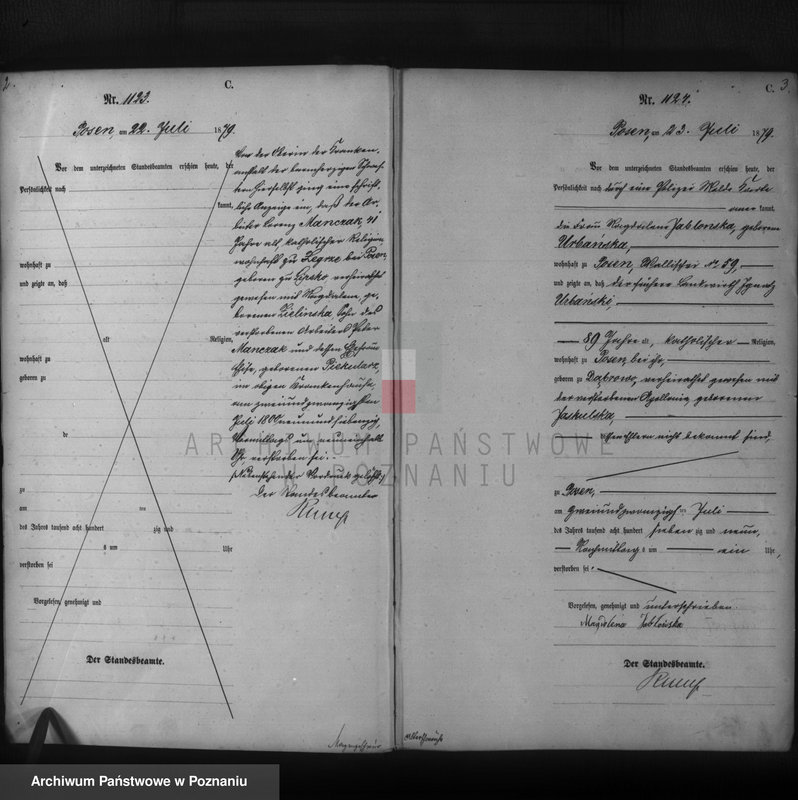 2.
C.
Nr. 1123.
Posen, am 22. Juli 1879.
Vor dem unterzeichneten Standesbeamten erschien heute, der
Persönlichkeit nach
kannt,
wohnhaft zu
und zeigte an, daß
alt Religion,
wohnhaft zu
geboren zu
de
zu
am ten
des Jahres tausend acht hundert zig und
s um Uhr
verstorben sei
Vorgelesen, genehmigt und
Der Standesbeamte.
Von der Oberin der Kranken-
anstalt der barmherzigen Schwes-
tern hierselbst ging eine schrift-
liche Anzeige ein, daß der Ar-
beiter Lorenz Manczak, 41
Jahre alt katholischer Religion
wohnhaft zu Zegrze bei Posen,
geboren zu Lipsko, verheirathet
gewesen mit Magdalena, ge-
borenen Zielinska, Sohn des
verstorbenen Arbeiters Peter
Manczak und dessen Ehefrau
geborenen Piskularz,
im obigen Krankenhause,
am zweiundzwanzigsten
Juli 1800 neunundsiebenzig,
Vormittags um neuneinhalb
Uhr verstorben sei.
Nebenstehender Vordruck gelöscht
Der Standesbeamte
C. 3.
Nr. 1124.
Posen, am 23. Juli 1879.
Vor dem unterzeichneten Standesbeamten erschien heute, der
Persönlichkeit nach durch eine Polizei Melde Karte
aner kannt,
die Frau Magdalena Jablonska, geborene
Urbańska,
wohnhaft zu Posen, Wallischei No 59,
und zeigte an, daß der frühere Landwirth Ignatz
Urbański,
89 Jahre a, katholischer Religion,
wohnhaft zu Posen, bei ihr,
geboren zu Dąbrowo, verheirathet gewesen mit
der verstorbenen Apollonia geborenen
Jaskulska,
Eltern nicht bekannt sind,
zu Posen,
am zweiundzwanzigs ten Juli
des Jahres tausend acht hundert sieben zig und neun,
Nachmittag s um ein Uhr,
verstorben sei.
Vorgelesen, genehmigt und unterschrieben
Magdalena Jabłońska
Der Standesbeamte.
ARCHIWUM PAŃSTWOWE
W POZNANIU
Archiwum Państwowe w Poznaniu